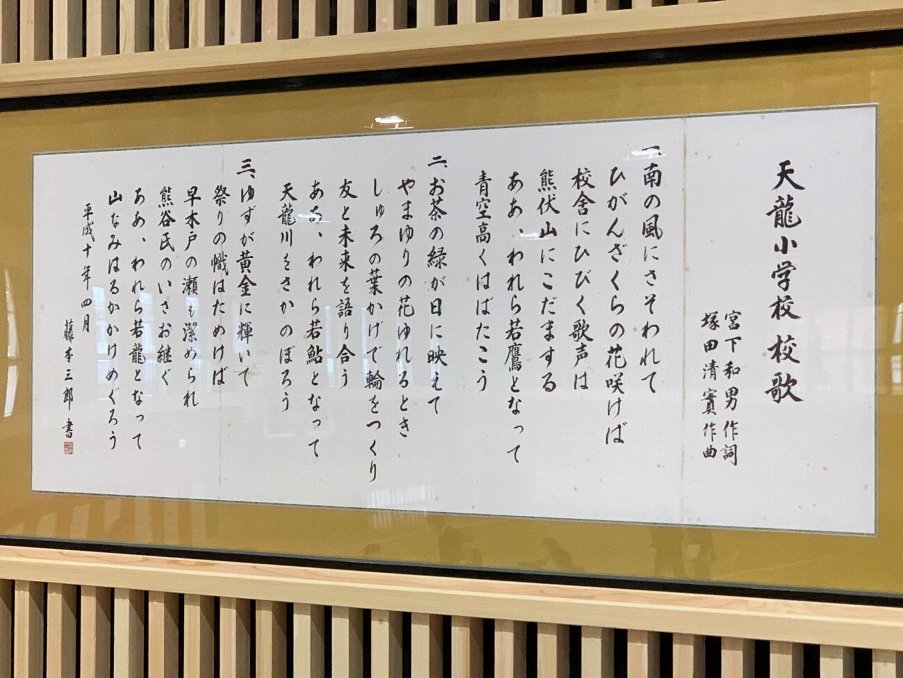 天龍小学校 校歌
宮下和男作詞
塚田清實作曲
一、南の風にさそわれて
ひがんざくらの花咲けば
校舎にひびく歌声は
熊伏山にこだまする
ああ、われら若鷹となって
青空高くはばたこう
二、お茶の緑が日に映えて
やまゆりの花ゆれるとき
しゅろの葉かげで輪をつくり
友と未来を語り合う
ああ、われら若鮎となって
天龍川をさかのぼろう
三、ゆずが黄金に輝いて
祭りの幟はためけば
早木戸の瀬も潔められ
熊谷氏のいさお継ぐ
ああ、われら若龍となって
山なみはるかかけめぐろう
平成十年四月
藤本三郎 書